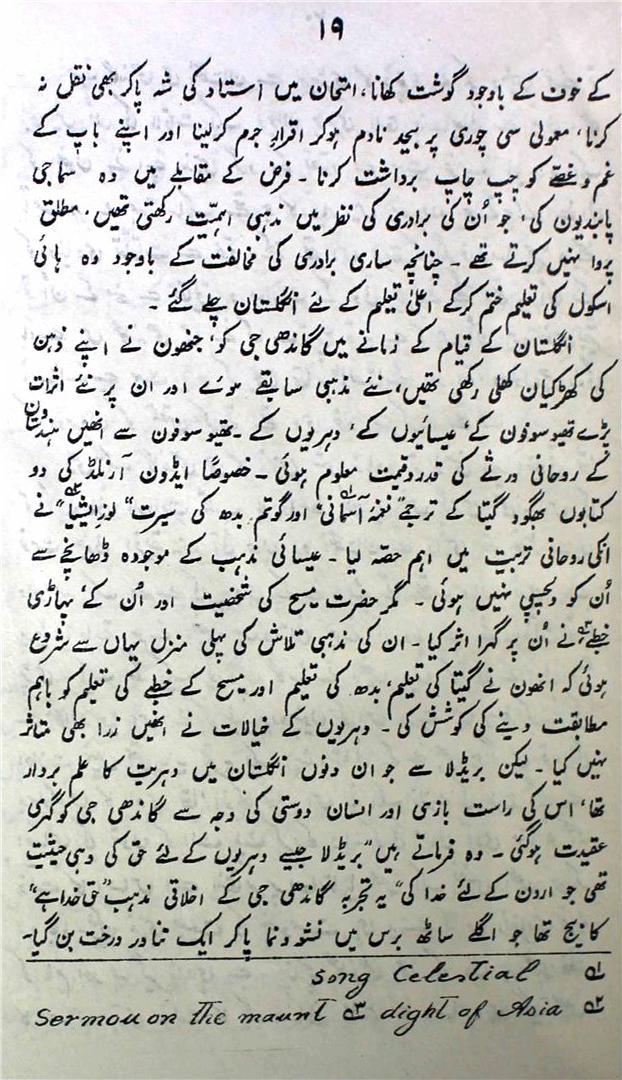 ۱۹
کے خوف کے باوجود گوشت کھانا، امتحان میں استاد کی شہ پاکر بھی نقل نہ
کرنا، معمولی سی چوری پر بیحد نادم ہوکر اقرارِ جرم کرلینا اور اپنے باپ کے
غم و غصّے کو چپ چاپ برداشت کرنا ۔ فرض کے مقابلے میں وہ سماجی
پابندیوں کی، جو اُن کی برادری کی نظر میں مذہبی اہمیّت رکھتی تھیں، مطلق
پروا نہیں کرتے تھے ۔ چنانچہ ساری برادری کی مخالفت کے باوجود وہ ہائی
اسکول کی تعلیم ختم کرکے اعلیٰ تعلیم کے لئے انگلستان چلے گئے ۔
انگلستان کے قیام کے زمانے میں گاندھی جی کو، جنھوں نے اپنے ذہن
کی کھڑکیاں کھلی رکھی تھیں، نئے مذہبی سابقے ہوئے اور ان پر نئے اثرات
پڑے تھیوسوفون کے، عیسائیوں کے، دہریوں کے ۔ تھیوسوفون سے انھیں ہندستان
کے روحانی ورثے کی قدر و قیمت معلوم ہوئی ۔ خصوصًا ایڈون آرنلڈ کی دو
کتابوں بھگود گیتا کے ترجمے "نغمۂ آسمانی" ۱؎ اور گوتم بدھ کی سیرت "نورِ ایشیا" ۲؎ نے
انکی روحانی تربیت میں اہم حصّہ لیا ۔ عیسائی مذہب کے موجودہ ڈھانچے سے
اُن کو دلچسپی نہیں ہوئی ۔ مگر حضرت مسیح کی شخصیت اور اُن کے پہاڑی
خطبے ۳؎ نے اُن پر گہرا اثر کیا ۔ ان کی مذہبی تلاش کی پہلی منزل یہاں سے شروع
ہوئی کہ انھوں نے گیتا کی تعلیم، بدھ کی تعلیم اور مسیح کے خطبے کی تعلیم کو باہم
مطابقت دینے کی کوشش کی ۔ دہریوں کے خیالات نے انھیں زرا بھی متاثر
نہیں کیا ۔ لیکن بریڈلا سے جو ان دنوں انگلستان میں دہریت کا علم بردار
تھا، اس کی راست بازی اور انسان دوستی کی وجہ سے گاندھی جی کو گہری
عقیدت ہوگئی ۔ وہ فرماتے ہیں "بریڈلا جیسے دہریوں کے لئے حق کی وہی حیثیت
تھی جو اوروں کے لئے خدا کی" یہ تجربہ گاندھی جی کے اخلاقی مذہب "حق خدا ہے"
کا بیج تھا جو اگلے ساٹھ برس میں نشوونما پاکر ایک تناور درخت بن گیا۔
۱؎ Song Celestial
۲؎ dight of Asia ۳؎ Sermou on the maunt